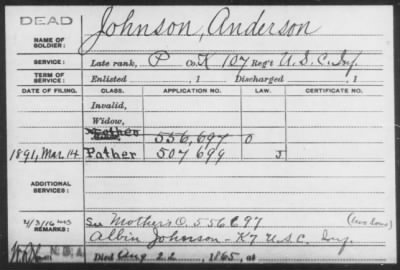 DEAD
Johnson, Anderson
NAME OF SOLDIER:
SERVICE: Late rank, P Co. K 107 Reg't U. S. C. Inf.
TERM OF SERVICE: Enlisted , 1 Discharged , 1
DATE OF FILING. CLASS. APPLICATION NO. LAW. CERTIFICATE NO.
Invalid,
Widow,
Mother 556,697 O
1891, Mar. 14 Father 507699 J
ADDITIONAL SERVICES:
4/3/16 REMARKS: See Mother's O. 556697 (two sons)
Albin Johnson - K 7 U.S.C. Inf.
Died Aug 22, 1865, at